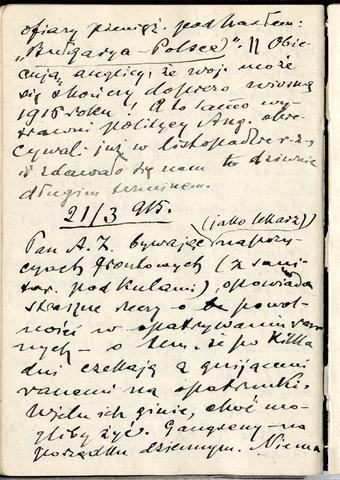 ofiary pienięż. pod hasłem:
„Bułgarya – Polsce”. || Obie-
cują anglicy, że woj. może
się skończy dopiero wiosną
1916 roku! A to samo wy-
trawni politycy Ang. obie-
cywali już w listopadzie r. z.
i zdawało się nam to dziwnie
długim terminem.
21/3 915.
Pan A. Z. bywając (jako lekarz) na pozy-
cyach frontowych (z sani-
tar. pod kulami), opowiada
straszne rzeczy o powol-
ności w opatrywaniu ran-
nych – o tem, że po kilka
dni czekają z gnijącemi
ranami na opatrunki.
Wielu ich ginie, choć mo-
gliby żyć. Gangreny – na
porządku dziennym. Niema